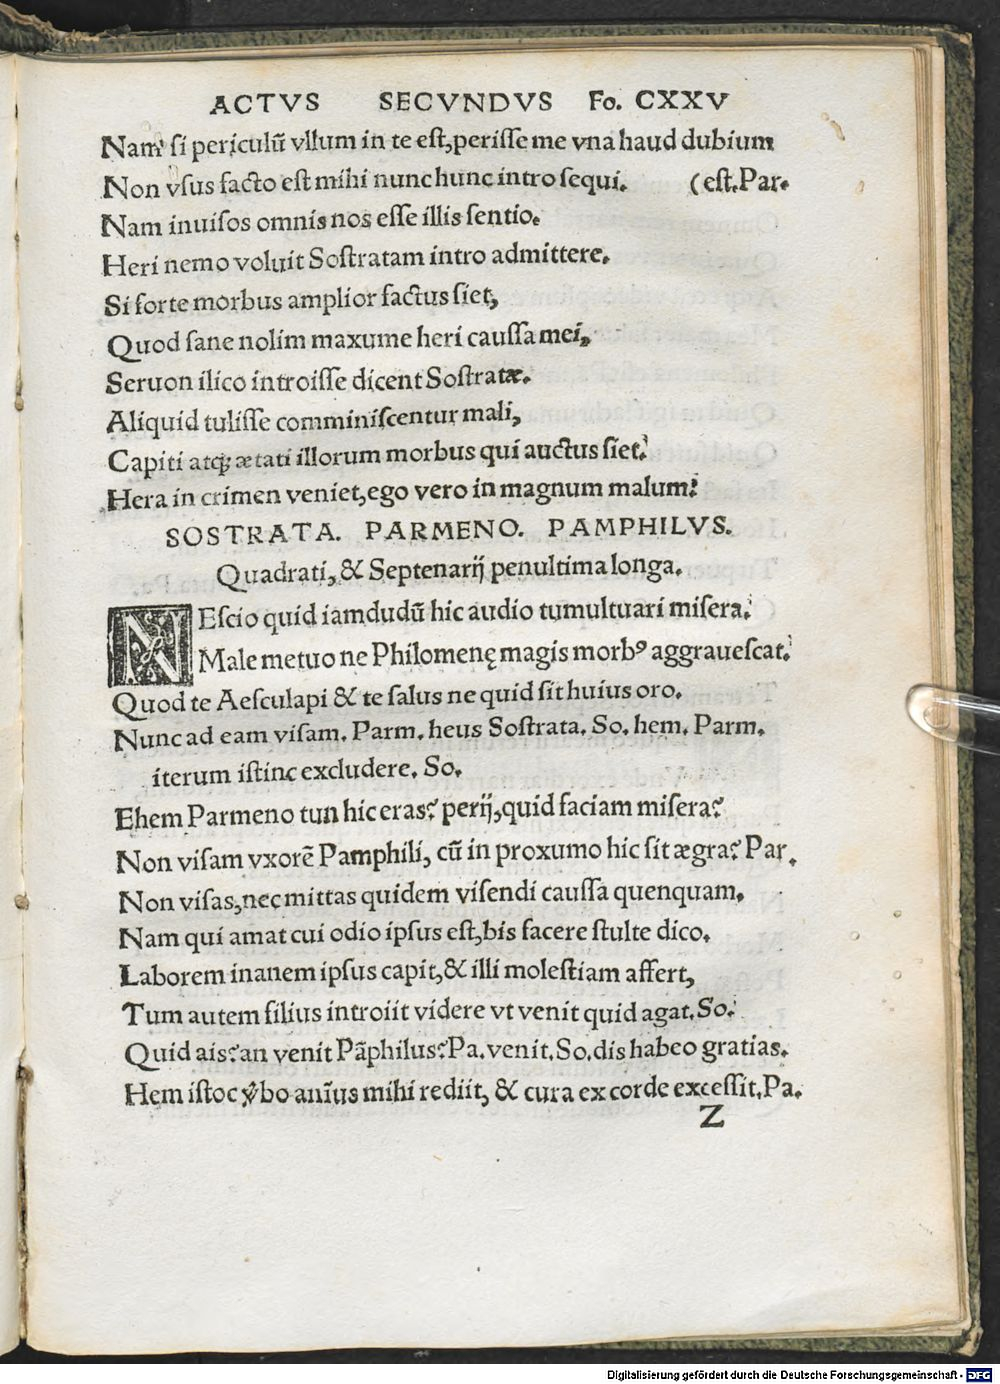 ACTVS SECVNDVS Fo. CXXV
Nam si periculũ vllum in te est, perisse me vna haud dubium
Non vsus facto est mihi nunc hunc intro sequi. (est. Par.
Nam inuisos omnis nos esse illis sentio.
Heri nemo voluit Sostratam intro admittere.
Si forte morbus amplior factus siet,
Quod sane nolim maxume heri caussa mei,
Seruon ilico introisse dicent Sostratæ.
Aliquid tulisse comminiscentur mali,
Capiti atq; ætati illorum morbus qui auctus siet.
Hera in crimen veniet, ego vero in magnum malum.
SOSTRATA. PARMENO. PAMPHILVS.
Quadrati, & Septenarij penultima longa.
NEscio quid iamdudũ hic audio tumultuari misera.
Male metuo ne Philomenę magis morbꝰ aggrauescat.
Quod te Aesculapi & te salus ne quid sit huius oro.
Nunc ad eam visam. Parm. heus Sostrata. So. hem. Parm.
iterum istinc excludere. So.
Ehem Parmeno tun hic eras? perij, quid faciam misera?
Non visam vxorẽ Pamphili, cũ in proxumo hic sit ægra? Par.
Non visas, nec mittas quidem visendi caussa quenquam.
Nam qui amat cui odio ipsus est, bis facere stulte dico.
Laborem inanem ipsus capit, & illi molestiam affert,
Tum autem filius introiit videre vt venit quid agat. So.
Quid ais? an venit Pãphilus? Pa. venit. So. dis habeo gratias.
Hem istoc v̾bo anĩus mihi rediit, & cura ex corde excessit. Pa.
Z
Digitalisierung gefördert durch die Deutsche Forschungsgemeinschaft - DFG